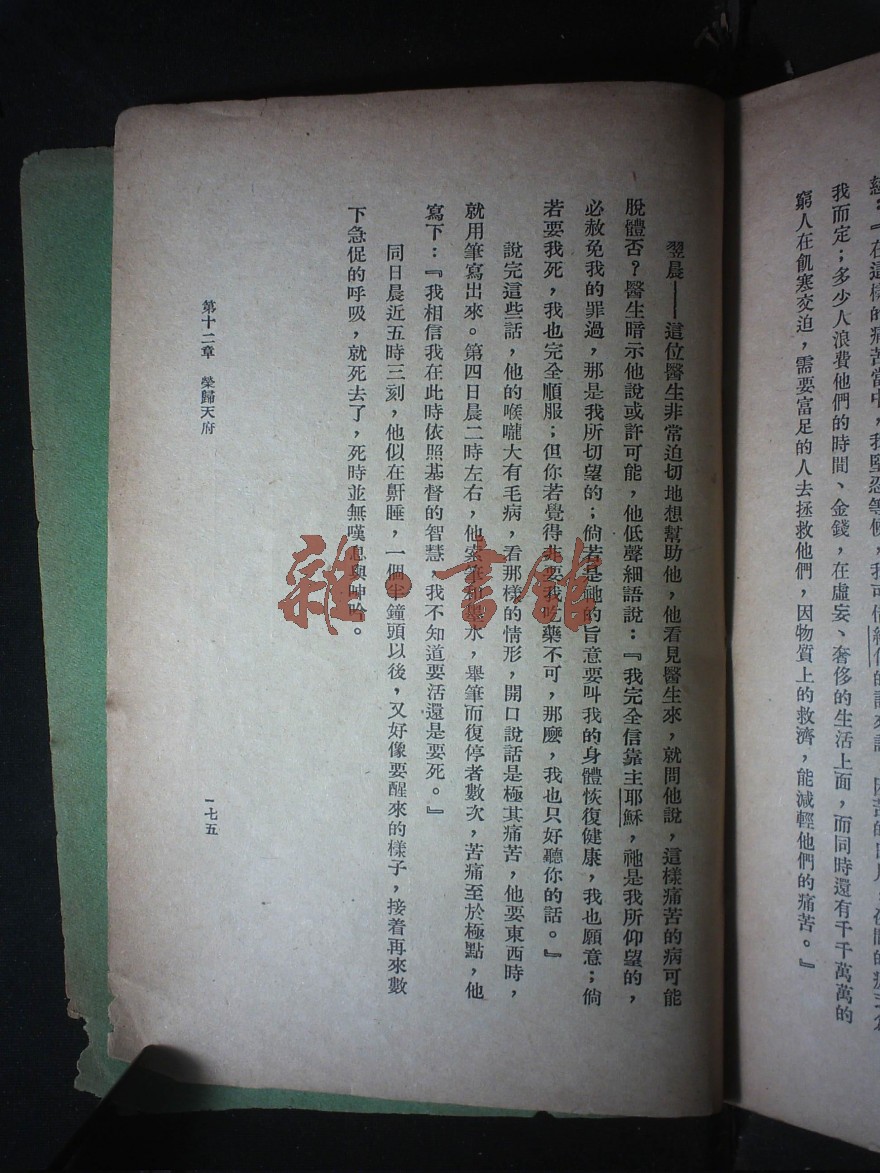 我而定；多少人浪費他們的時間、金錢，在虛妄、奢侈的生活上面，而同時還有千千萬萬的
窮人在飢寒交迫，需要富足的人去拯救他們，因物質上的救濟，能減輕他們的痛苦。』
翌晨——這位醫生非常迫切地想幫助他，他看見醫生來，就問他說，這樣痛苦的病可能
脫體否？醫生暗示他說或許可能，他低聲細語說：『我完全信靠主耶穌，祂是我所仰望的，
必赦免我的罪過，那是我所切望的；倘若是祂的旨意要叫我的身體恢復健康，我也願意；倘
若要我死，我也完全順服；但你若覺得非要我吃藥不可，那麼，我也只好聽你的話。』
說完這些話，他的喉嚨大有毛病，看那樣的情形，開口說話是極其痛苦，他要東西時，
就用筆寫出來。第四日晨二時左右，他索筆和墨水，舉筆而復停者數次，苦痛至於極點，他
寫下：『我相信我在此時依照基督的智慧，我不知道要活還是要死。』
同日晨近五時三刻，他似在鼾睡，一個半鐘頭以後，又好像要醒來的樣子，接着再來數
下急促的呼吸，就死去了，死時並無嘆息與呻吟。
第十二章　榮歸天府
一七五
雜·書館